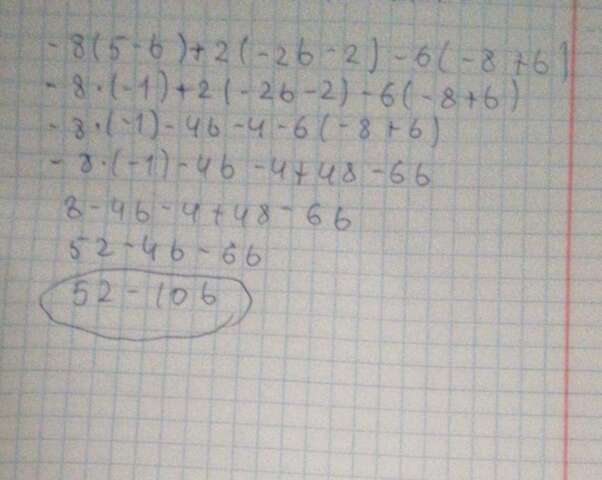 -8(5-6)+2(-2b-2)-6(-8+b)
-8·(-1)+2(-2b-2)-6(-8+b)
-8·(-1)-4b-4-6(-8+b)
-8·(-1)-4b-4+48-6b
8-4b-4+48-6b
52-4b-6b
52-10b